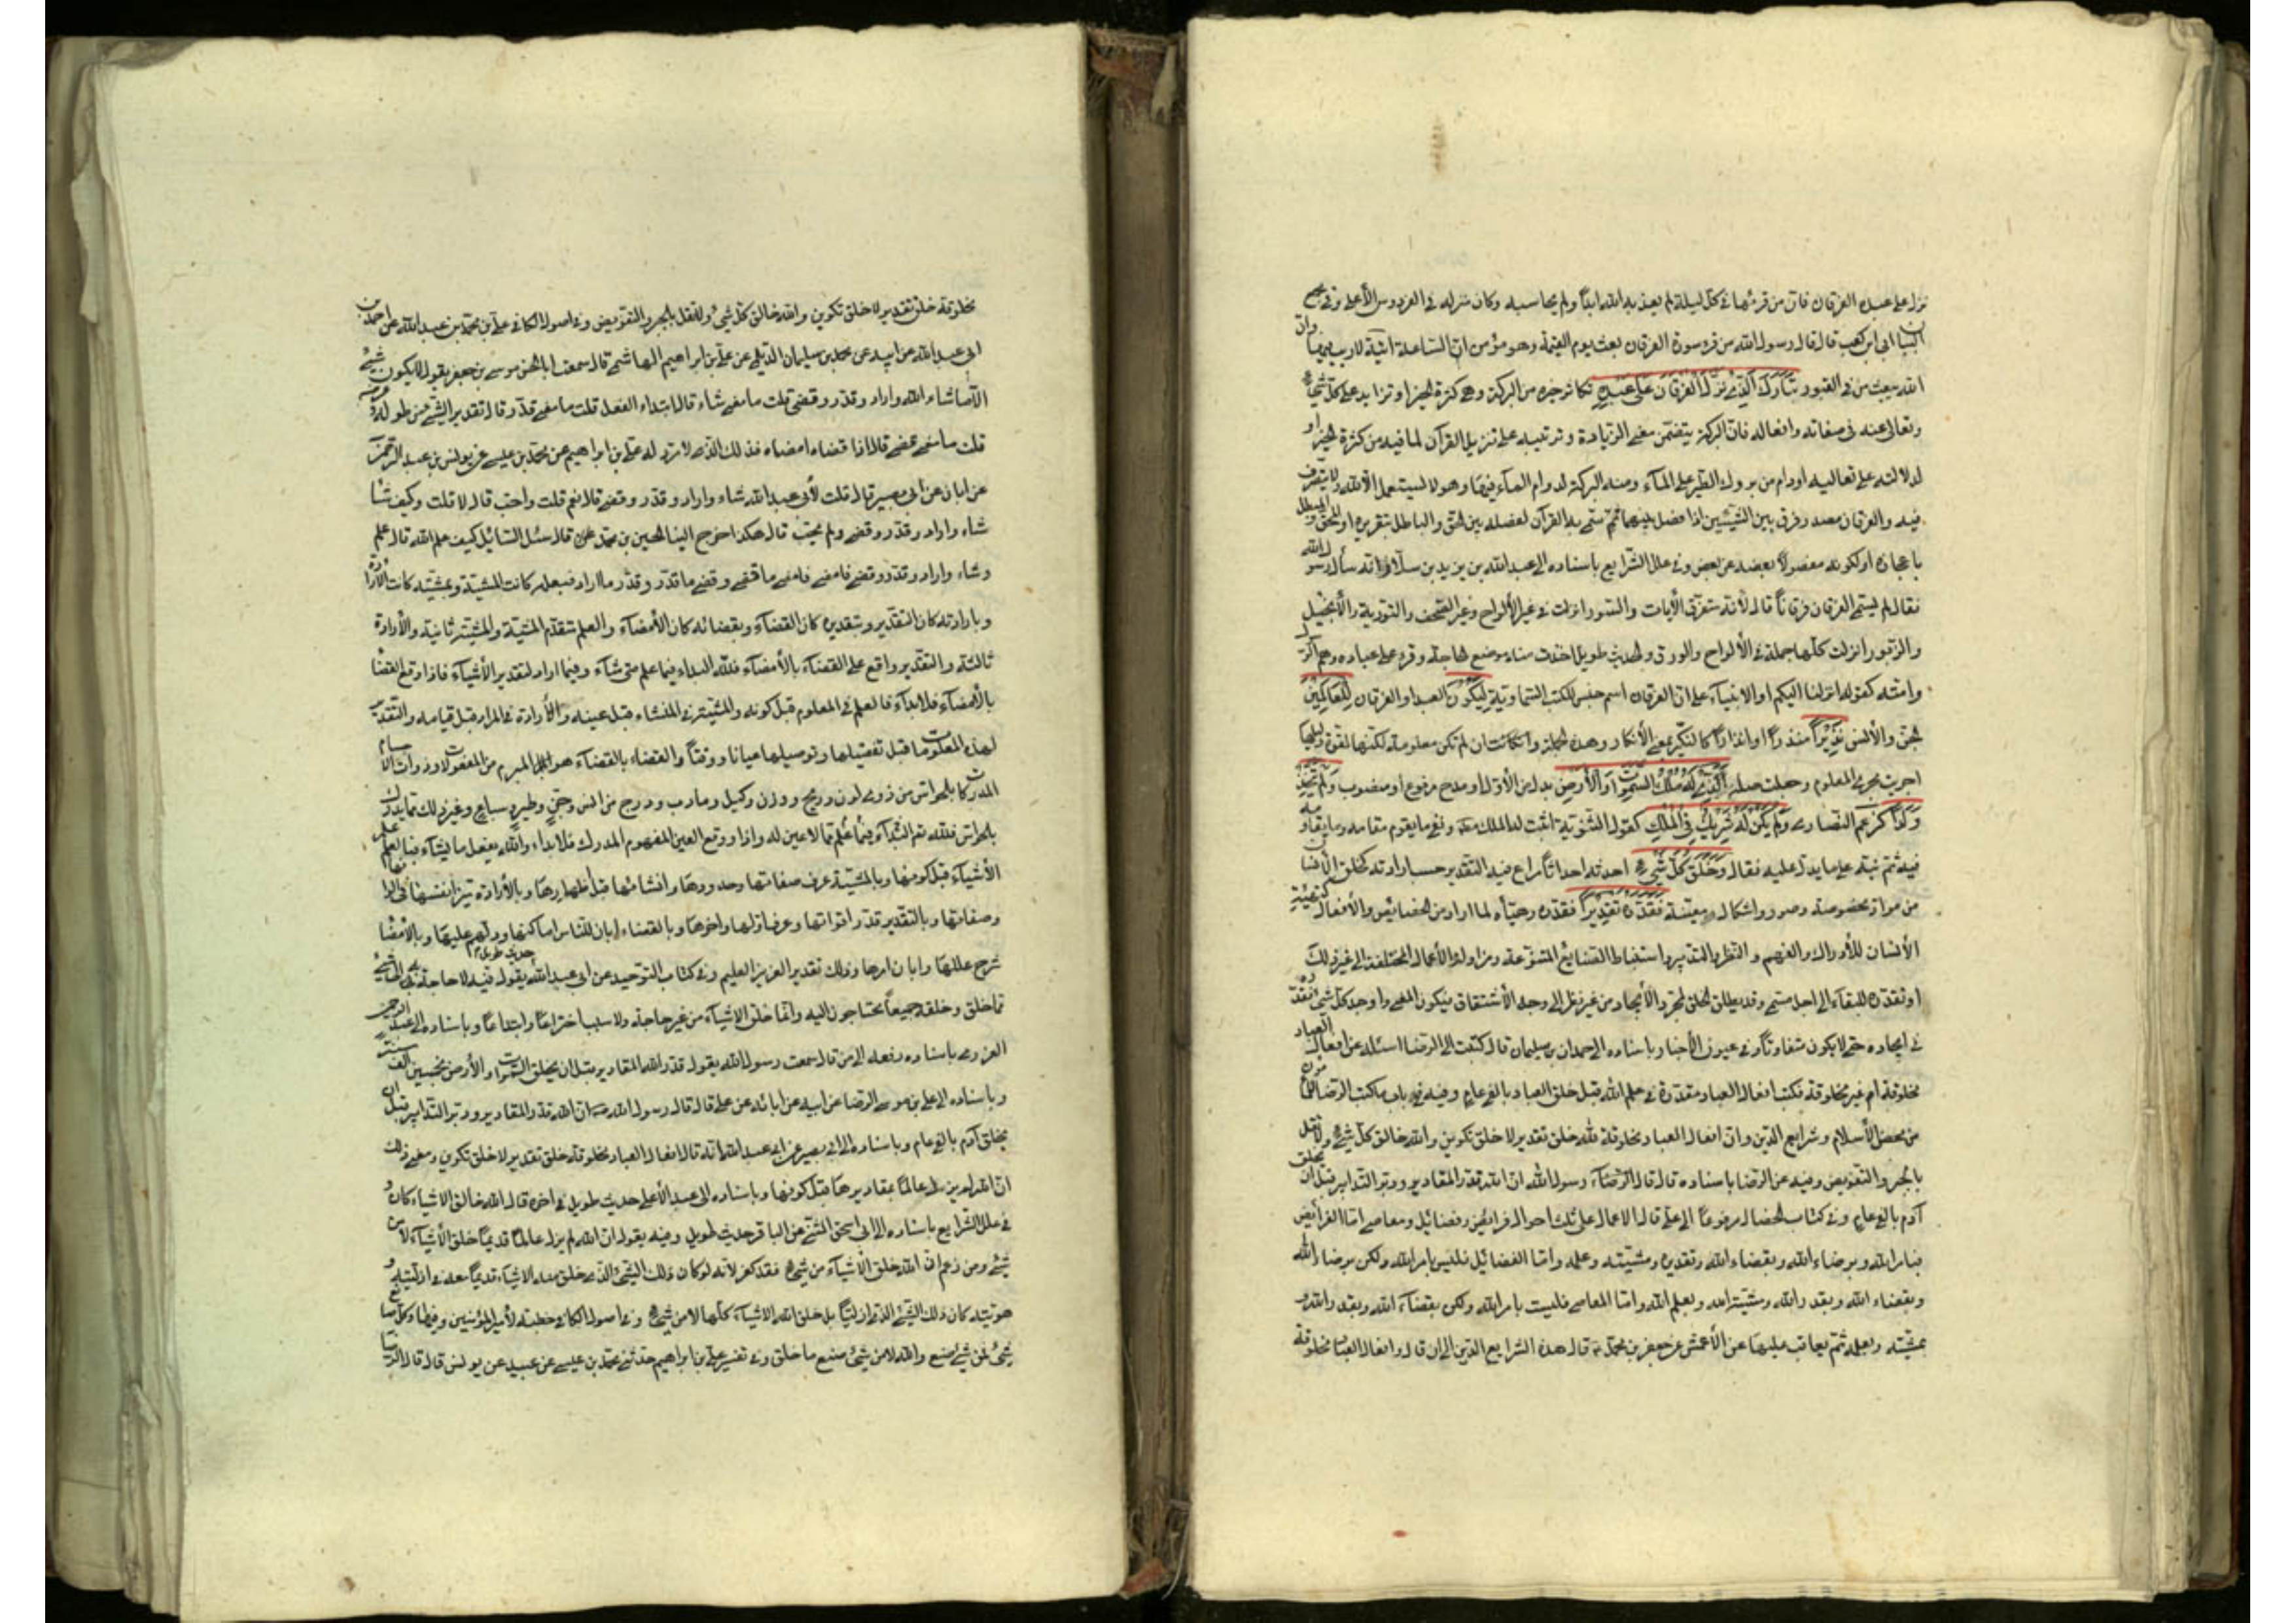 نزل على عبده الفرقان فان من قرئها في كل ليلة لم يعذبه الله ابدا ولم يحاسبه وكان منزله في الفردوس الأعلى وفي مجمع
البيان ابى ابن كعب قال قال رسول الله من قرء سورة الفرقان بعث يوم القيمة وهو مؤمن ان الساعة اتية لا ريب فيها وان
الله يبعث من في القبور تبارك الذي نزل الفرقان على عبده تكاثر خيره من البركة وهي كثرة الخير او تزايد على كل شيء
وتعالى عنه في صفاته وافعاله فان البركة يتضمن معنى الزيادة وترتيبه على تنزيل القرآن لما فيه من كثرة الخير او
لدلالته على تعاليه او دام من بروك الطير على الماء ومنه البركة لدوام الماء فيها وهو لا يستعمل الا لله ولا يتصرف
فيه والفرقان مصدر فرق بين الشيئين اذا فصل بينهما ثم سمي به القرآن لفصله بين الحق والباطل بتقريره او المحق والمبطل
باعجازه او لكونه مفصولا بعضه عن بعض وفي علل الشرايع باسناده الى عبد الله بن يزيد بن سلام انه سأل رسول الله
فقال لم سمى الفرقان فرقانا قال لأنه متفرق الأيات والسور انزلت في غير الألواح وغير الصحف والتورية والأنجيل
والزبور انزلت كلها جملة في الألواح والورق والحديث طويل اخذت منه موضع الحاجة وقرء على عباده وهم الرسول
وامته كقوله انزلنا اليكم او الانبياء على ان الفرقان اسم جنس للكتب السماوية ليكون العبد او الفرقان للعالمين
للجن والأنس نذيرا منذرا او انذارا كالنكير بمعنى الأنكار وهذه الجملة وان كانت ان لم تكن معلومة لكنها لقوة دليلها
اجريت مجرى المعلوم وجعلت صلة الذي له ملك السموات والأرض بدل من الأول او مدح مرفوع او منصوب ولم يتخذ
ولدا كزعم النصارى ولم يكن له شريك في الملك كقول الثنوية اثبت له الملك مطلقا ونفى ما يقوم مقامه وما يقاومه
فيه ثم نبه على ما يدل عليه فقال وخلق كل شيء احدثه احداثا راعى فيه التقدير حسب ارادته كخلق الانسان
من مواد مخصوصة وصور واشكال معينة فقدره تقديرا فقدره وهيأه لما اراد من الخصايص والأفعال كتهيئة
الأنسان للأدراك والفهم والنظر والتدبير واستنباط الصنايع المتنوعة ومزاولة الأعمال المختلفة الى غير ذلك
او فقدره للبقاء الى اجل مسمى وقد يطلق الخلق لمجرد الأيجاد من غير نظر الى وجه الأشتقاق فيكون المعنى واوجد كل شيء فقدره
في ايجاده حتى لا يكون متفاوتا وفي عيون الأخبار باسناده الى حمدان بن سليمان قال كتبت الى الرضا اسئله عن افعال العباد
مخلوقة ام غير مخلوقة فكتب افعال العباد مقدرة في علم الله قبل خلق العباد بالفي عام وفيه في باب ما كتب الرضا للمأمون
من محض الأسلام وشرايع الدين وان افعال العباد مخلوقة لله خلق تقدير لا خلق تكوين والله خالق كل شيء ولا نقل
بالجبر والتفويض وفيه عن الرضا باسناده قال قال رسول الله ان الله قدر المقادير ودبر التدابير قبل ان يخلق
آدم بالفي عام وفي كتاب الخصال مرفوعا الى علي قال الاعمال على ثلث احوال فرائض وفضائل ومعاصي اما الفرائض
فبامر الله وبرضاء الله وبقضاء الله وتقديره ومشيته وعلمه واما الفضائل فليس بامر الله ولكن برضاء الله
وبقضاء الله وبقدر الله ومشية الله وبعلم الله واما المعاصي فليست بامر الله ولكن بقضاء الله وبقدر الله و
بمشيته وبعلمه ثم يعاقب عليها عن الأعمش عن جعفر بن محمد قال هذه الشرايع الدين الى ان قال وافعال العباد مخلوقة
مخلوقة خلق تقدير لا خلق تكوين والله خالق كل شيء ولا نقل بالجبر والتفويض وفي اصول الكافي علي بن محمد بن عبد الله عن احمد بن
ابى عبد الله عن ابيه عن محمد بن سليمان الديلمي عن علي بن ابراهيم الهاشمي قال سمعت ابا الحسن موسى بن جعفر يقول لا يكون شيء
الا ما شاء الله واراد وقدر وقضى قلت ما معنى شاء قال ابتداء الفعل قلت ما معنى قدر قال تقدير الشيء من طوله وعرضه
قلت ما معنى قضى قال اذا قضاه امضاه فذلك الذي لا مرد له علي بن ابراهيم عن محمد بن عيسى عن يونس بن عبد الرحمن
عن ابان عن ابى بصير قال قلت لأبي عبد الله شاء واراد وقدر وقضى قال نعم قلت واحب قال لا قلت وكيف شاء
شاء واراد وقدر وقضى ولم يحب قال هكذا اخرج الينا الحسين بن محمد عن قال سئل السائل كيف علم الله قال علم
وشاء واراد وقدر وقضى فامضى فامضى ما قضى وقضى ما قدر وقدر ما اراد فبعلمه كانت المشية وبمشيته كانت الأرادة
وبارادته كان التقدير وبتقديره كان القضاء وبقضائه كان الأمضاء والعلم متقدم المشية والمشية ثانية والأرادة
ثالثة والتقدير واقع على القضاء بالأمضاء فلله البداء فيما علم متى شاء وفيما اراد لتقدير الأشياء فاذا وقع القضاء
بالأمضاء فلا بداء فالعلم في المعلوم قبل كونه والمشية في المنشاء قبل عينه والأرادة في المراد قبل قيامه والتقدير
لهذه المعلومات قبل تفصيلها وتوصيلها عيانا ووقتا والقضاء بالقضاء هو المبرم من المفعولات ذوات الاجسام
المدركات بالحواس من ذوي لون وريح ووزن وكيل وما دب ودرج من انس وجن وطير وسباع وغير ذلك مما يدرك
بالحواس فلله تم البداء فيما علم مما لا عين له واذا وقع العين المفهوم المدرك فلا بداء والله يفعل ما يشاء فبالعلم علم
الأشياء قبل كونها وبالمشية عرف صفاتها وحدودها وانشائها قبل اظهارها وبالأرادة ميز انفسها في الوانها
وصفاتها وبالتقدير قدر اقواتها وعرف اولها واخرها وبالقضاء ابان للناس اماكنها ودلهم عليها وبالأمضاء
شرح عللها وابان امرها وذلك تقدير العزيز العليم وفي كتاب التوحيد عن ابى عبد الله حديث طويل يقول فيه لا حاجة به الى شيء
مما خلق وخلقه جميعا يحتاجون اليه وانما خلق الاشياء من غير حاجة ولا سبب اختراعا وابتداعا وباسناده الى عبد الرحمن
العزرمي باسناده رفعه الى من قال سمعت رسول الله يقول قدر الله المقادير قبل ان يخلق السموات والأرض بخمسين الف سنة
وباسناده الى علي بن موسى الرضا عن ابيه عن ابائه عن علي قال قال رسول الله ان الله قدر المقادير ودبر التدابير قبل ان
يخلق آدم بالفي عام وباسناده الى ابى بصير عن ابى عبد الله انه قال افعال العباد مخلوقة خلق تقدير لا خلق تكوين ومعنى ذلك
ان الله لم يزل عالما بمقاديرها قبل كونها وباسناده الى عبد الأعلى حديث طويل في اخره قال الله خالق الاشياء كان و
في علل الشرايع باسناده الى ابى اسحق الليثي عن الباقر حديث طويل وفيه يقول ان الله لم يزل عالما قديما خلق الأشياء لا من
شيء ومن زعم ان الله خلق الأشياء من شيء فقد كفر لأنه لو كان ذلك الشيء الذي خلق منه الاشياء قديما معه في ازليته و
هويته كان ذلك الشيء ازليا بل خلق الله الاشياء كلها لا من شيء وفي اصول الكافي خطبة لأمير المؤمنين وفيها وكل صانع
شيء فمن شيء صنع والله لا من شيء صنع ما خلق وفي تفسير علي بن ابراهيم حدثني محمد بن عيسى عن عبيد عن يونس قال قال الرضا